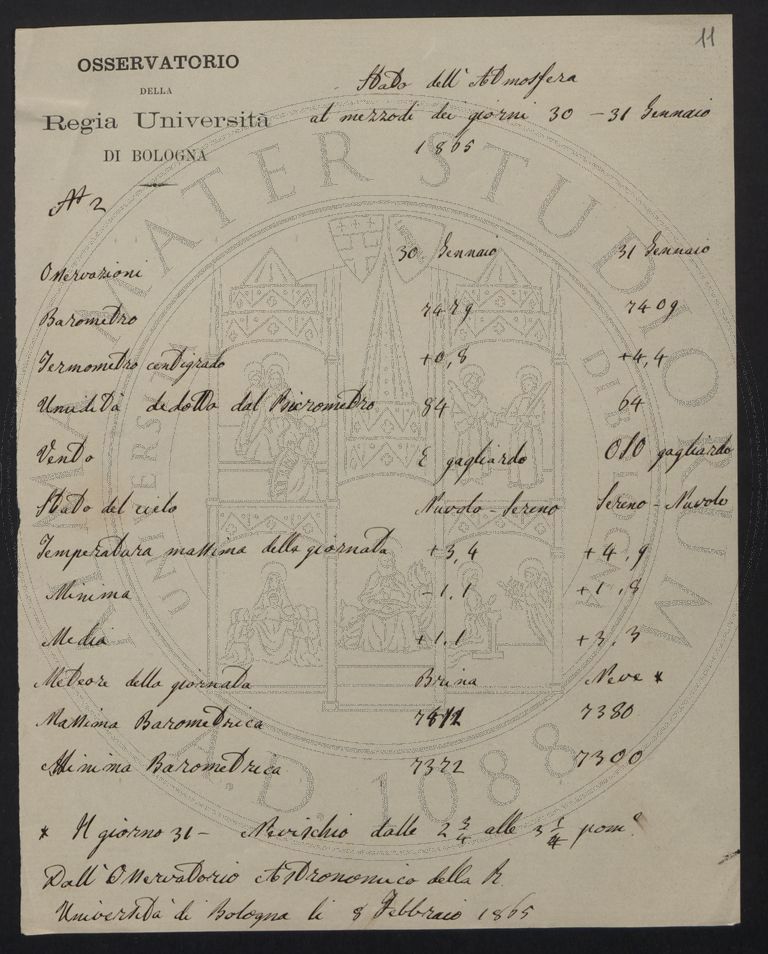 11
OSSERVATORIO
DELLA
Regia Università
DI BOLOGNA
Stato dell'Atmosfera
al mezzodì dei giorni 30 - 31 Gennaio
1865
N° 2
Osservazioni 30 Gennaio 31 Gennaio
Barometro 7429 7409
Termometro centigrado +0,8 +4,4
Umidità dedotta dal Psicrometro 84 64
Vento E gagliardo OSO gagliardo
Stato del cielo Nuvolo - Sereno Sereno - Nuvolo
Temperatura massima della giornata +3,4 +4,9
Minima -1,1 +1,8
Media +1,1 +3,3
Meteore della giornata Brina Neve *
Massima Barometrica 7380
Minima Barometrica 7372 7300
* Il giorno 31 - Nevischio dalle 2 3/4 alle 3 pom.e
Dall'Osservatorio Astronomico della R.
Università di Bologna li 8 Febbraio 1865
ALMA MATER STUDIORUM
UNIVERSITÀ DI BOLOGNA
A.D. 1088